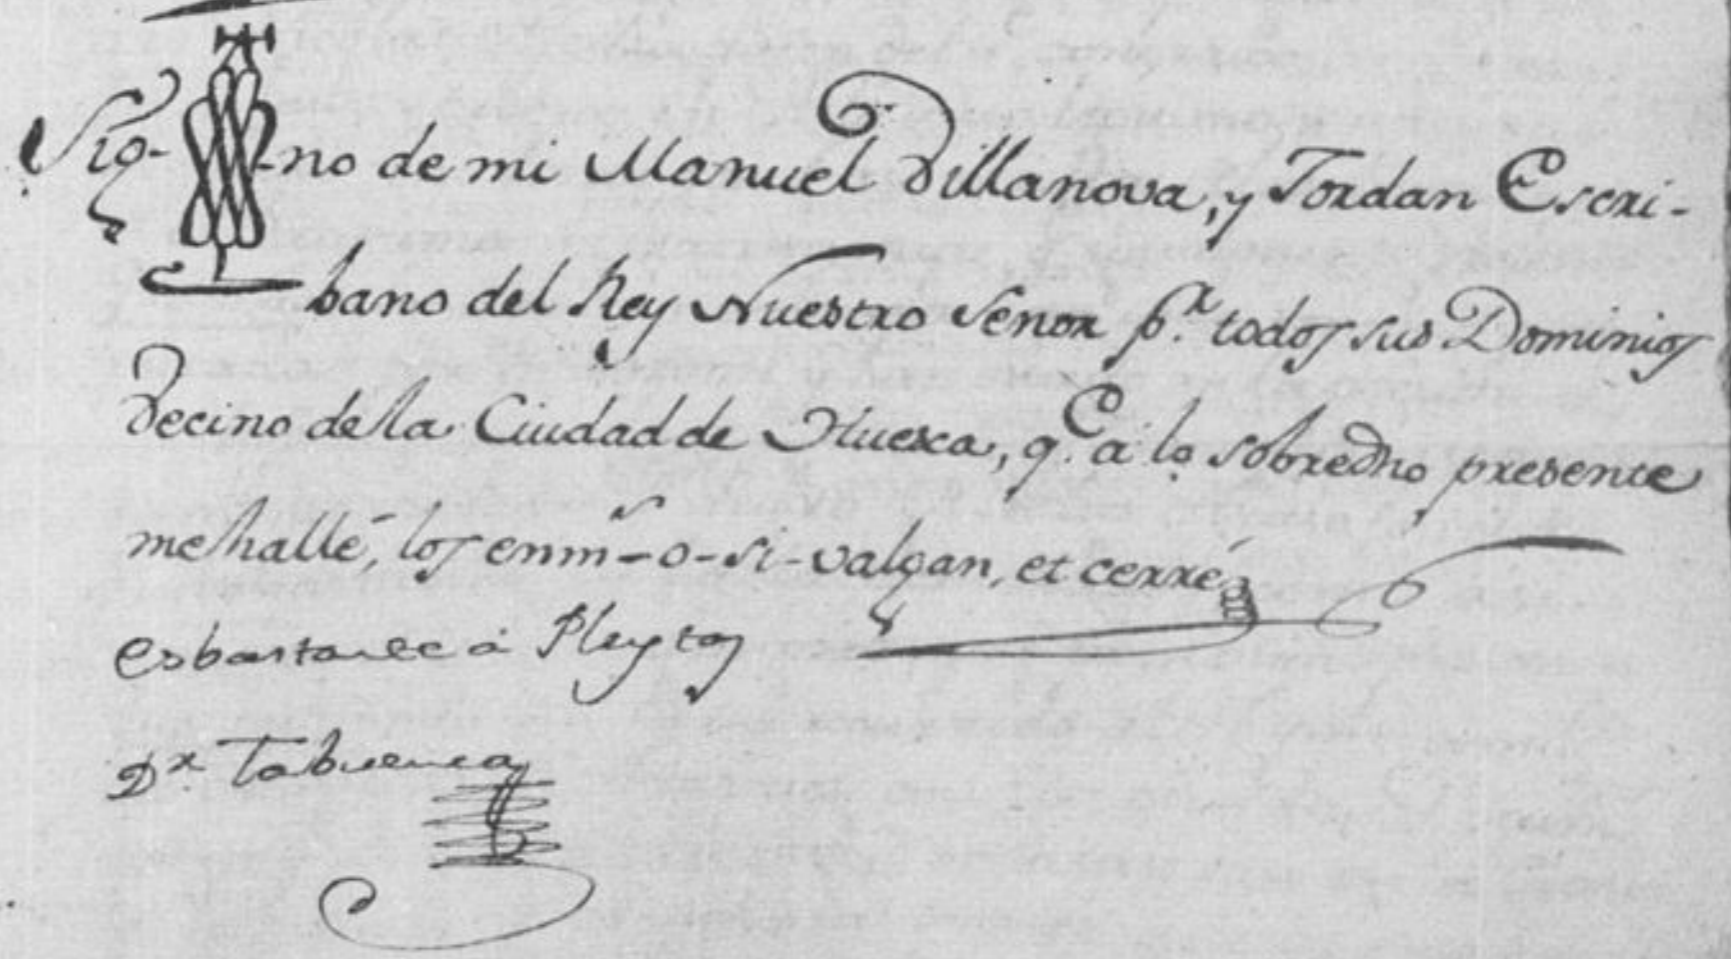 Sig- -no de mi Manuel Villanova, y Jordan Escri-
bano del Rey Nuestro Señor p.r todos sus Dominios
Vecino de la Ciudad de Huesca, q.e a lo sobredho presente
me hallé, los enm.s - o - si - valgan, et cerré
es bastante á Pleytos
D.r Tabuenca